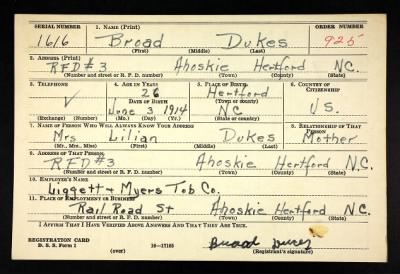 SERIAL NUMBER 1. NAME (Print) ORDER NUMBER
1616 Broad Dukes 925
(First) (Middle) (Last)
2. ADDRESS (Print)
RFD#3 Ahoskie Hertford N.C.
(Number and street or R. F. D. number) (Town) (County) (State)
3. TELEPHONE 4. AGE IN YEARS 5. PLACE OF BIRTH 6. COUNTRY OF CITIZENSHIP
26 Hertford
DATE OF BIRTH (Town or county)
June 3 1914 NC U.S.
(Exchange) (Number) (Mo.) (Day) (Yr.) (State or country)
7. NAME OF PERSON WHO WILL ALWAYS KNOW YOUR ADDRESS 8. RELATIONSHIP OF THAT PERSON
Mrs Lilian Dukes Mother
(Mr., Mrs., Miss) (First) (Middle) (Last)
9. ADDRESS OF THAT PERSON
RFD#3 Ahoskie Hertford N.C.
(Number and street or R. F. D. number) (Town) (County) (State)
10. EMPLOYER'S NAME
Liggett + Myers Tob Co.
11. PLACE OF EMPLOYMENT OR BUSINESS
Rail Road St Ahoskie Hertford N.C.
(Number and street or R. F. D. number) (Town) (County) (State)
I AFFIRM THAT I HAVE VERIFIED ABOVE ANSWERS AND THAT THEY ARE TRUE.
REGISTRATION CARD
D. S. S. Form 1 (over) 16—17105 Broad
(Registrant's signature)